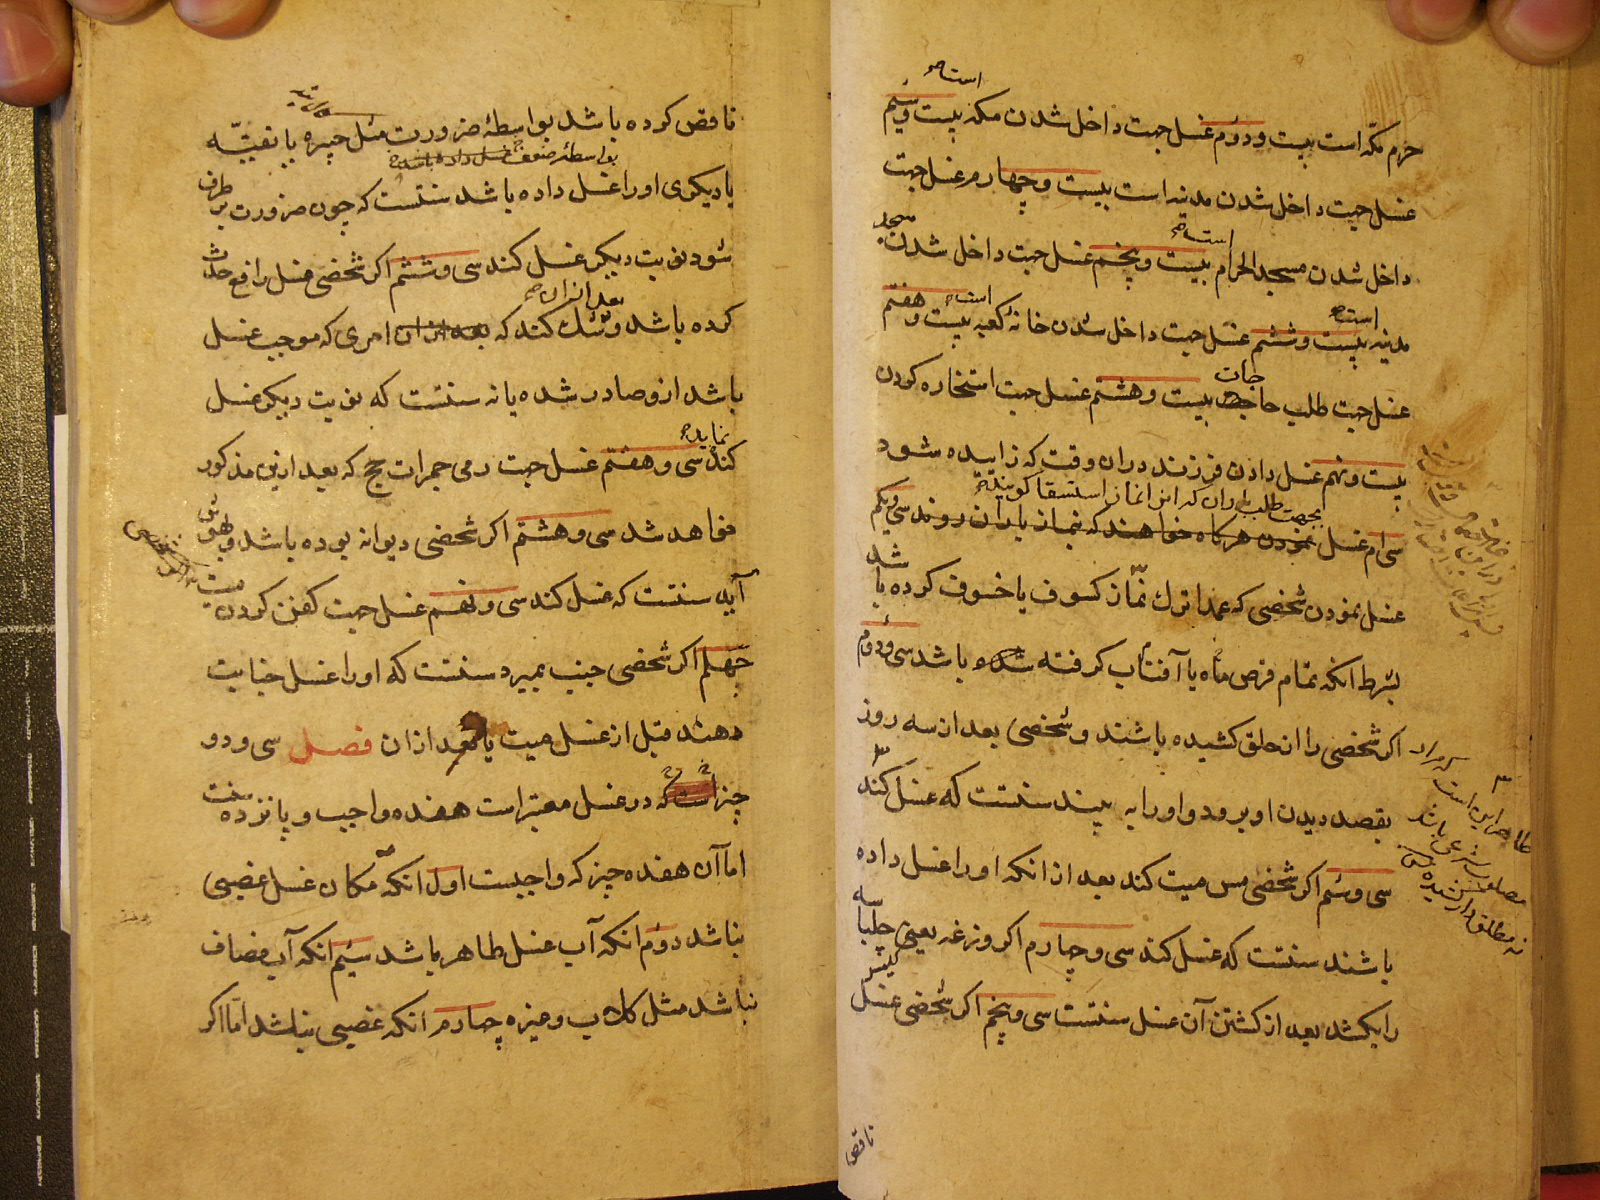 حرم مکّه است بیست و دوّم غسل جهت داخل شدن مکه است بیست و سیّم
غسل جهت داخل شدن مدینه است بیست و چهارم غسل جهت
داخل شدن مسجد الحرام است بیست و پنجم غسل جهت داخل شدن مسجد
مدینه است بیست و ششم غسل جهت داخل شدن خانۀ کعبه است بیست و هفتم
غسل جهت طلب حاجات بیست و هشتم غسل جهت استخاره کردن
بیست و نهم غسل دادن فرزند دران وقت که زاییده شود
بجهت طلب باران که این را نماز استسقا کویند
سی ام غسل نمودن هرکاه خواهند که بنماز باران روند سی و یکم
غسل نمودن شخصی که عمدا ترك نماز کسوف یا خسوف کرده باشد
بشرط انکه تمام قرص ماه یا آفتاب کرفته شده باشد سی و دوّم
اکر شخصی را از حلق کشیده باشند و شخصی بعد از سه روز
بقصد دیدن او برود و او را به بیند سنتست که غسل کند
سی و سیّم اکر شخصی مس میت کند بعد از انکه او را غسل داده
باشند سنتست که غسل کند سی و چهارم اکر وزغه یعنی چلپاسه
را بکشد بعد از کشتن آن غسل سنتست سی و پنجم اکر شخصی غسل
ظاهر این است که مراد
مصلوب شرعی باشد
نه مطلق دار کشیده
ناقص
ناقص کرده باشد بواسطۀ ضرورت مثل جبیره یا تقیّه
بواسطۀ ضعف غسل داده باشد
یا دیکری او را غسل داده باشد سنتست که چون ضرورت بر طرف
شود نوبت دیکر غسل کند سی و ششم اکر شخصی غسل رافع حدث
کرده باشد و شك کند که بعد از ان امری که موجب غسل
باشد ازو صادر شده یا نه سنتست که نوبت دیکر غسل
کند نماید سی و هفتم غسل جهت رمی جمرات حج که بعد ازین مذکور
خواهد شد سی و هشتم اکر شخصی دیوانه بوده باشد و بهوش
آید سنتست که غسل کند سی و نهم غسل جهت کفن کردن میت
چهلم اکر شخصی جنب بمیرد سنتست که او را غسل جنابت
دهند قبل از غسل میت یا بعد ازان فصل سی و دو
چیز است که در غسل معتبر است هفده واجب و پانزده سنت
اما آن هفده چیز که واجبست اول انکه مکان غسل غصبی
نباشد دوّم انکه آب غسل طاهر باشد سیّم انکه آب مضاف
نباشد مثل کلاب و غیره چهارم انکه غصبی نباشد امّا اکر